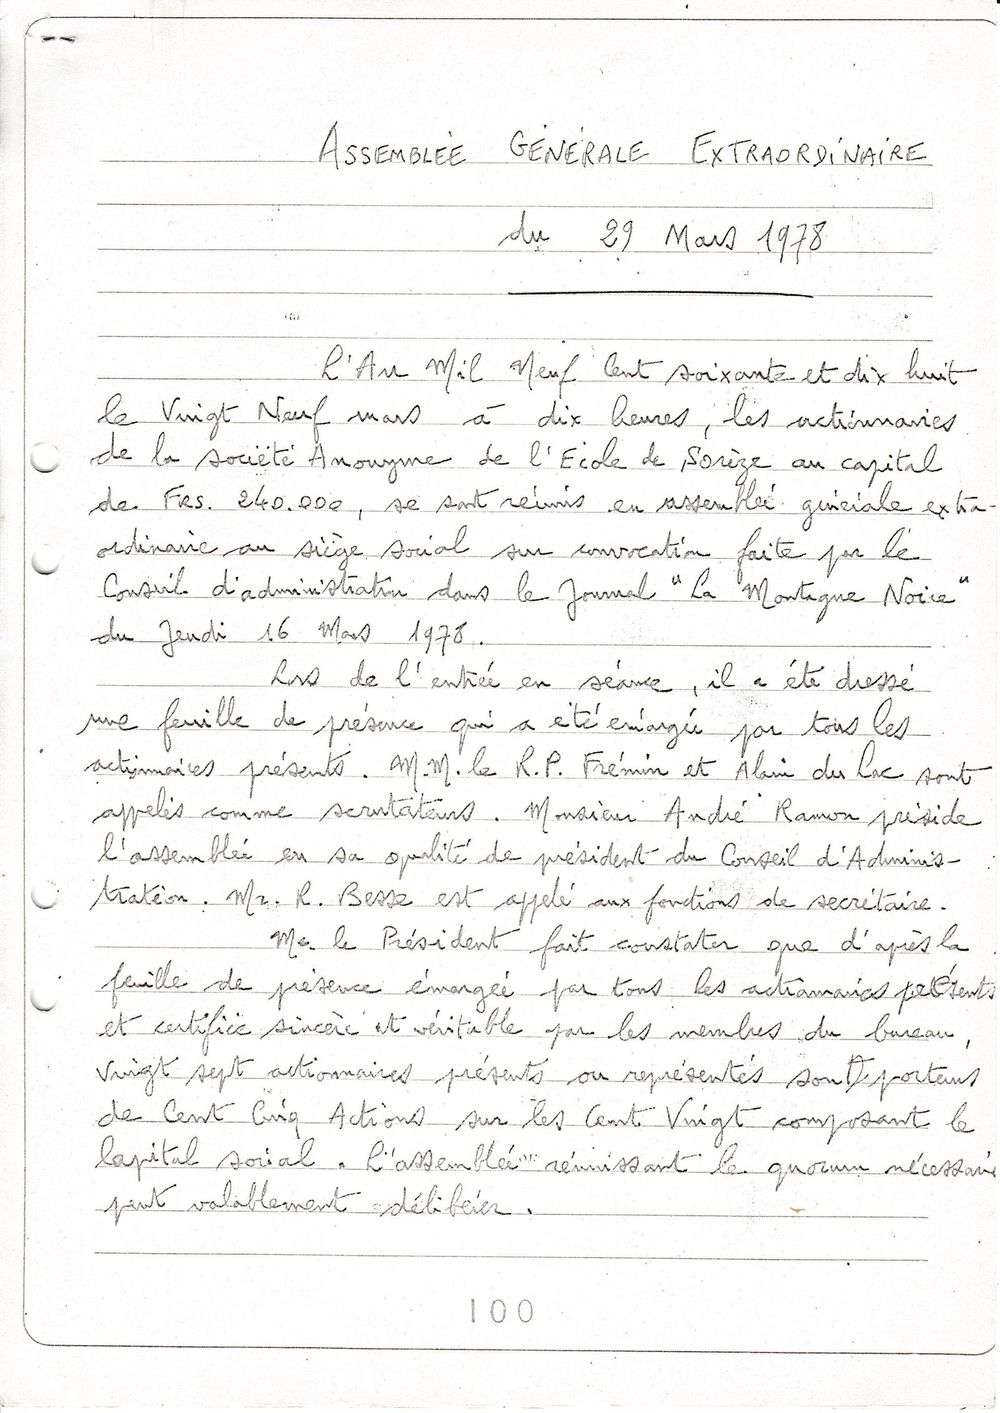 ASSEMBLÉE GÉNÉRALE EXTRAORDINAIRE
du 29 Mars 1978
L'An Mil Neuf Cent soixante et dix huit
le Vingt Neuf mars à dix heures, les actionnaires
de la société Anonyme de l'Ecole de Sorèze au capital
de FRS. 240.000, se sont réunis en assemblée générale extra-
ordinaire au siège social sur convocation faite par le
Conseil d'administration dans le Journal "La Montagne Noire"
du Jeudi 16 Mars 1978.
Lors de l'entrée en séance, il a été dressé
une feuille de présence qui a été émargée par tous les
actionnaires présents. M.M. le R.P. Frémin et Alain du Lac sont
appelés comme scrutateurs. Monsieur André Ramon préside
l'assemblée en sa qualité de président du Conseil d'Adminis-
tration. Mr. R. Besse est appelé aux fonctions de secrétaire.
Mr. le Président fait constater que d'après la
feuille de présence émargée par tous les actionnaires présents
et certifiée sincère et véritable par les membres du bureau,
Vingt sept actionnaires présents ou représentés sont porteurs
de Cent Cinq Actions sur les Cent Vingt composant le
Capital social. L'assemblée réunissant le quorum nécessaire
peut valablement délibérer.
100